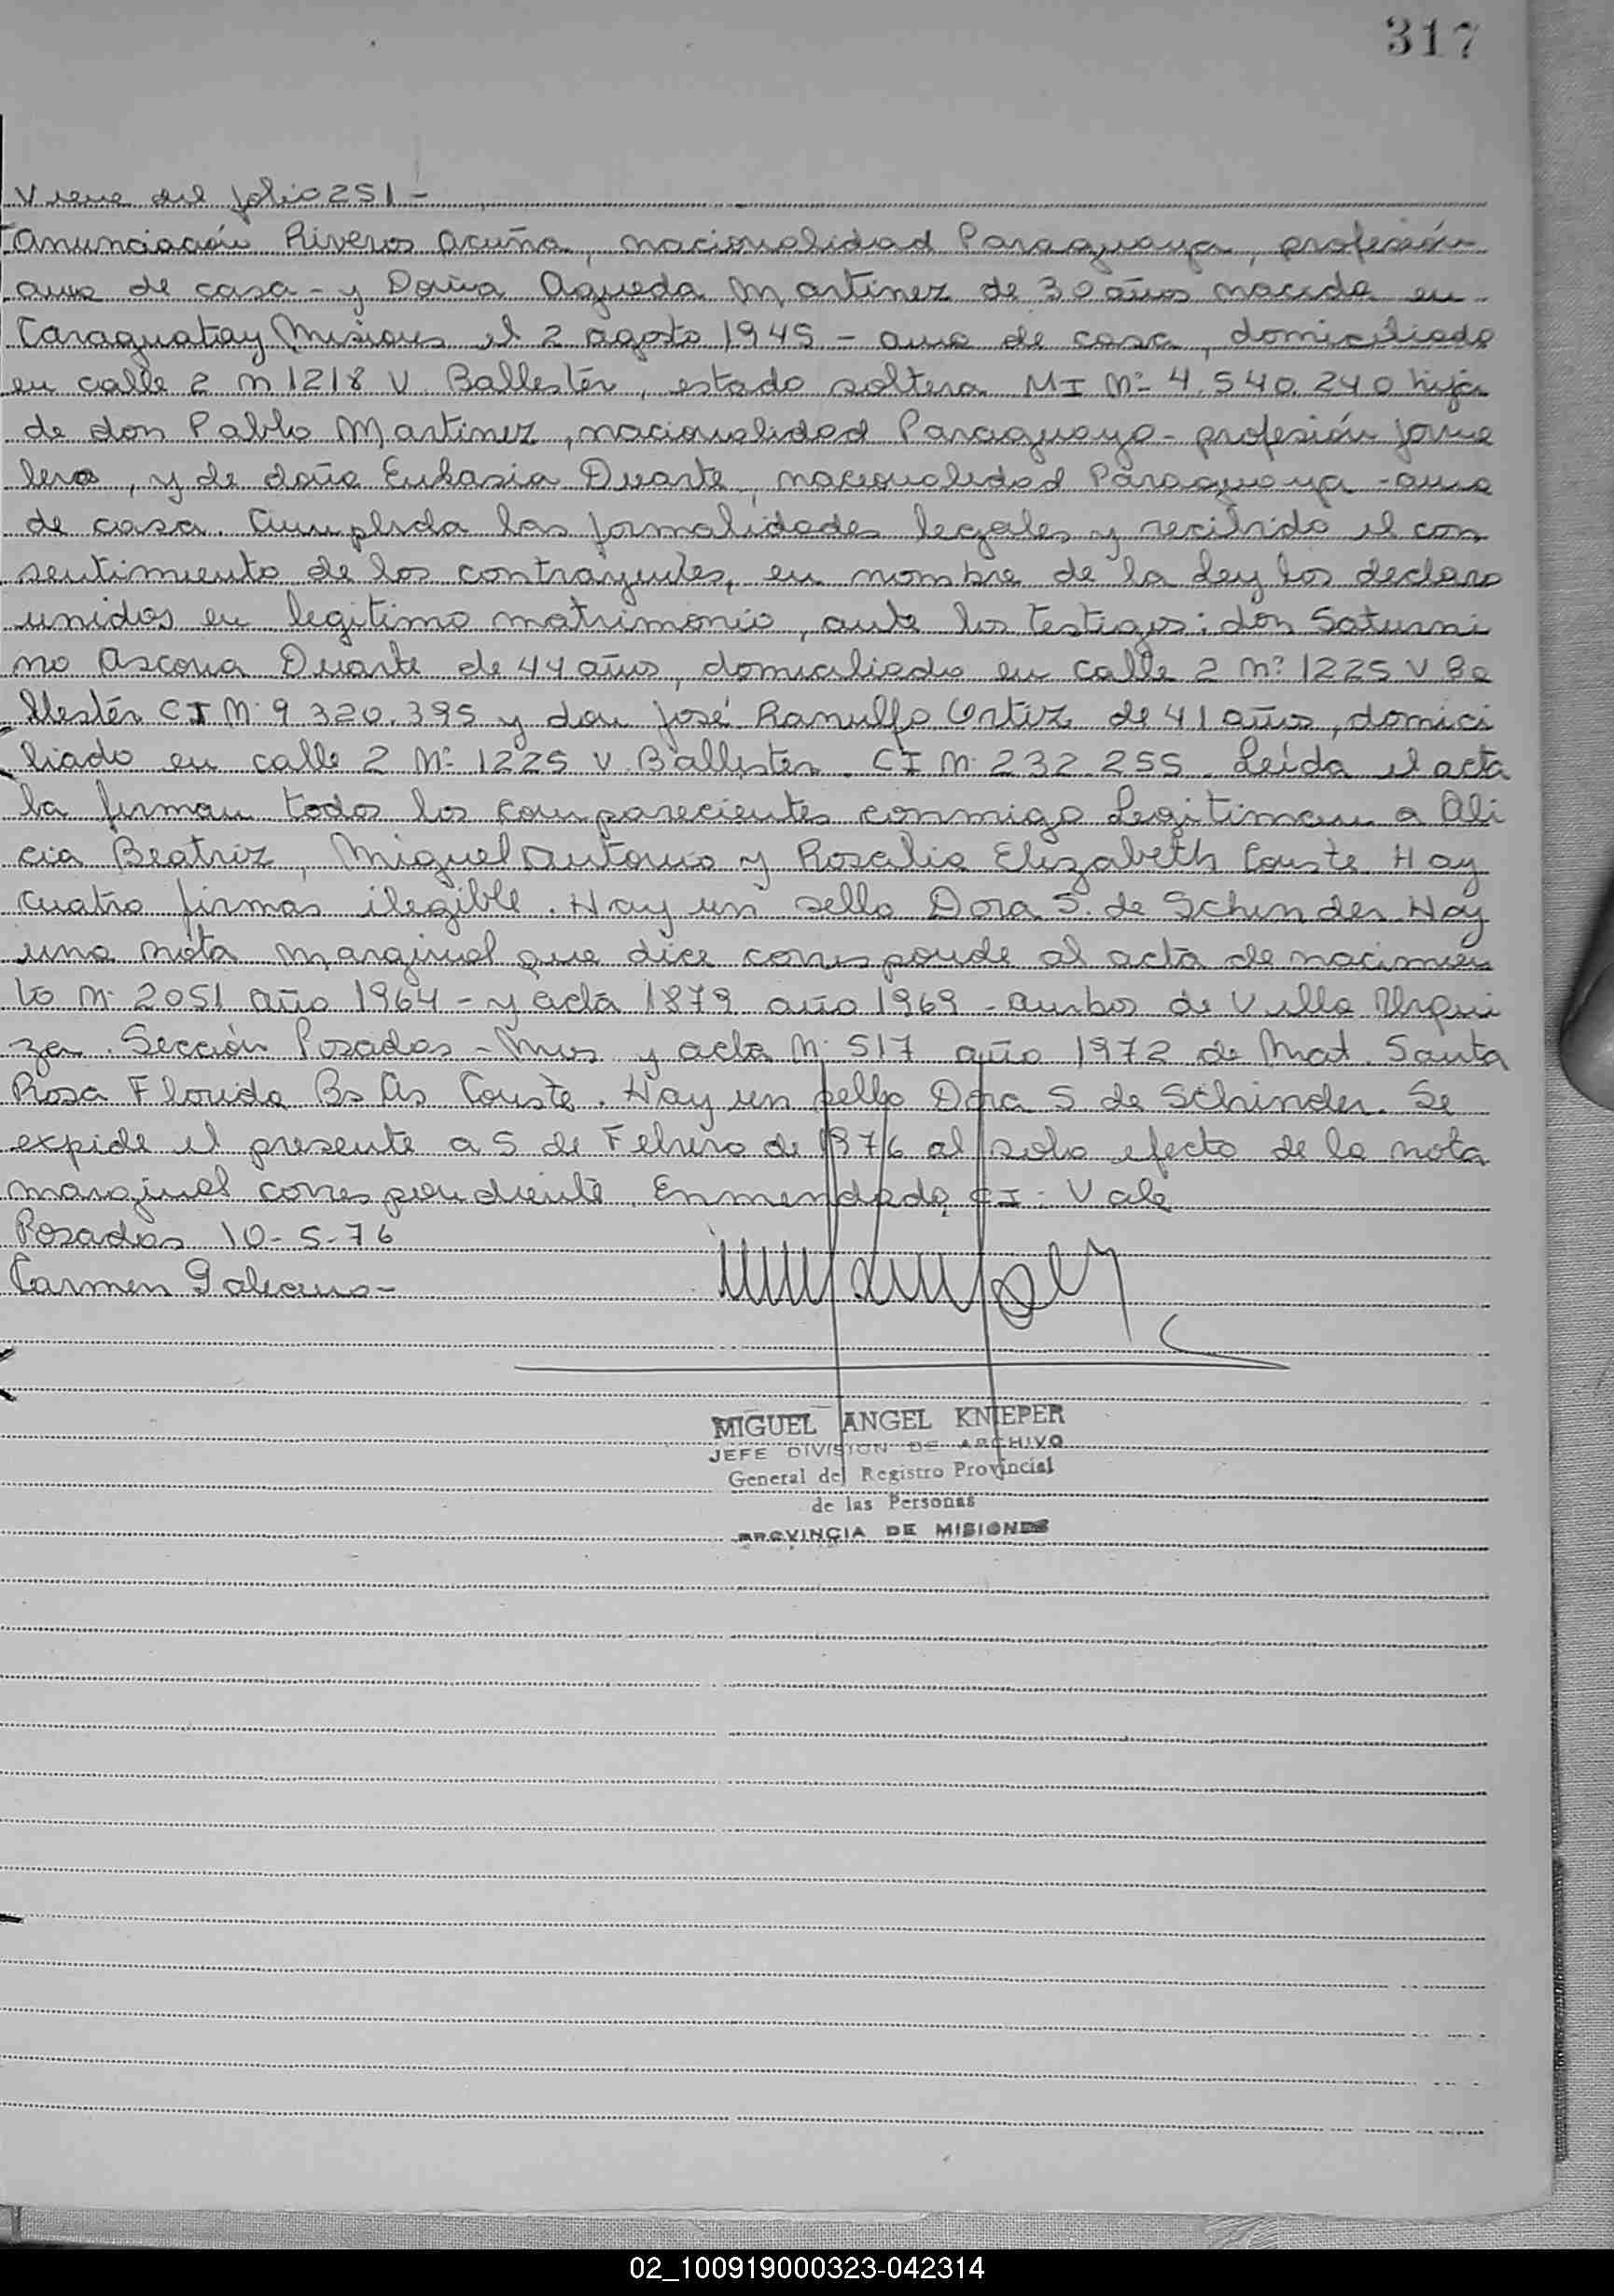 317
Viene del folio 251 -
Anunciación Riveros Acuña, nacionalidad Paraguaya, profesión
ama de casa - y Doña Agueda Martinez de 30 años nacida en
Caraguatay Misiones el 2 agosto 1945 - ama de casa, domiciliada
en calle 2 n 1218 V. Ballestér, estado soltera MI Nº 4.540.240 hija
de don Pablo Martinez, nacionalidad Paraguayo - profesión jorna
lero, y de doña Duarte, nacionalidad Paraguaya - ama
de casa. Cumplida las formalidades legales y recibido el con
sentimiento de los contrayentes, en nombre de la Ley los declaro
unidos en legitimo matrimonio, ante los testigos: don Saturni
no Ascona Duarte de 44 años, domiciliado en calle 2 Nº 1225 V Ba
llestér CI Nº 9 320.395 y don José Ranulfo Ortiz de 41 años, domici
liado en calle 2 Nº 1225 V. Ballester. CI Nº 232.255. Leída el acta
la firman todos los comparecientes conmigo Legitiman a Ali
cia Beatriz, Miguel Antonio y Rosalia Elizabeth Conste Hay
cuatro firmas ilegible. Hay un sello Dora S. de Schinder Hay
una nota marginal que dice corresponde al acta de nacimien
to Nº 2051 año 1964 - y acta 1879 año 1969 - ambos de Villa Urqui
za. Sección Posadas - Mnes y acta Nº 517 año 1972 de Mat. Santa
Rosa Florida Bs As Conste. Hay un sello Dora S de Schinder. Se
expide el presente a 5 de Febrero de 1976 al solo efecto de la nota
marginal correspondiente. Enmendado CI: Vale
Posadas 10-5-76
Carmen Galeano -
MIGUEL ANGEL KNIEPER
JEFE DIVISION DE ARCHIVO
General del Registro Provincial
de las Personas
PROVINCIA DE MISIONES
02_100919000323-042314